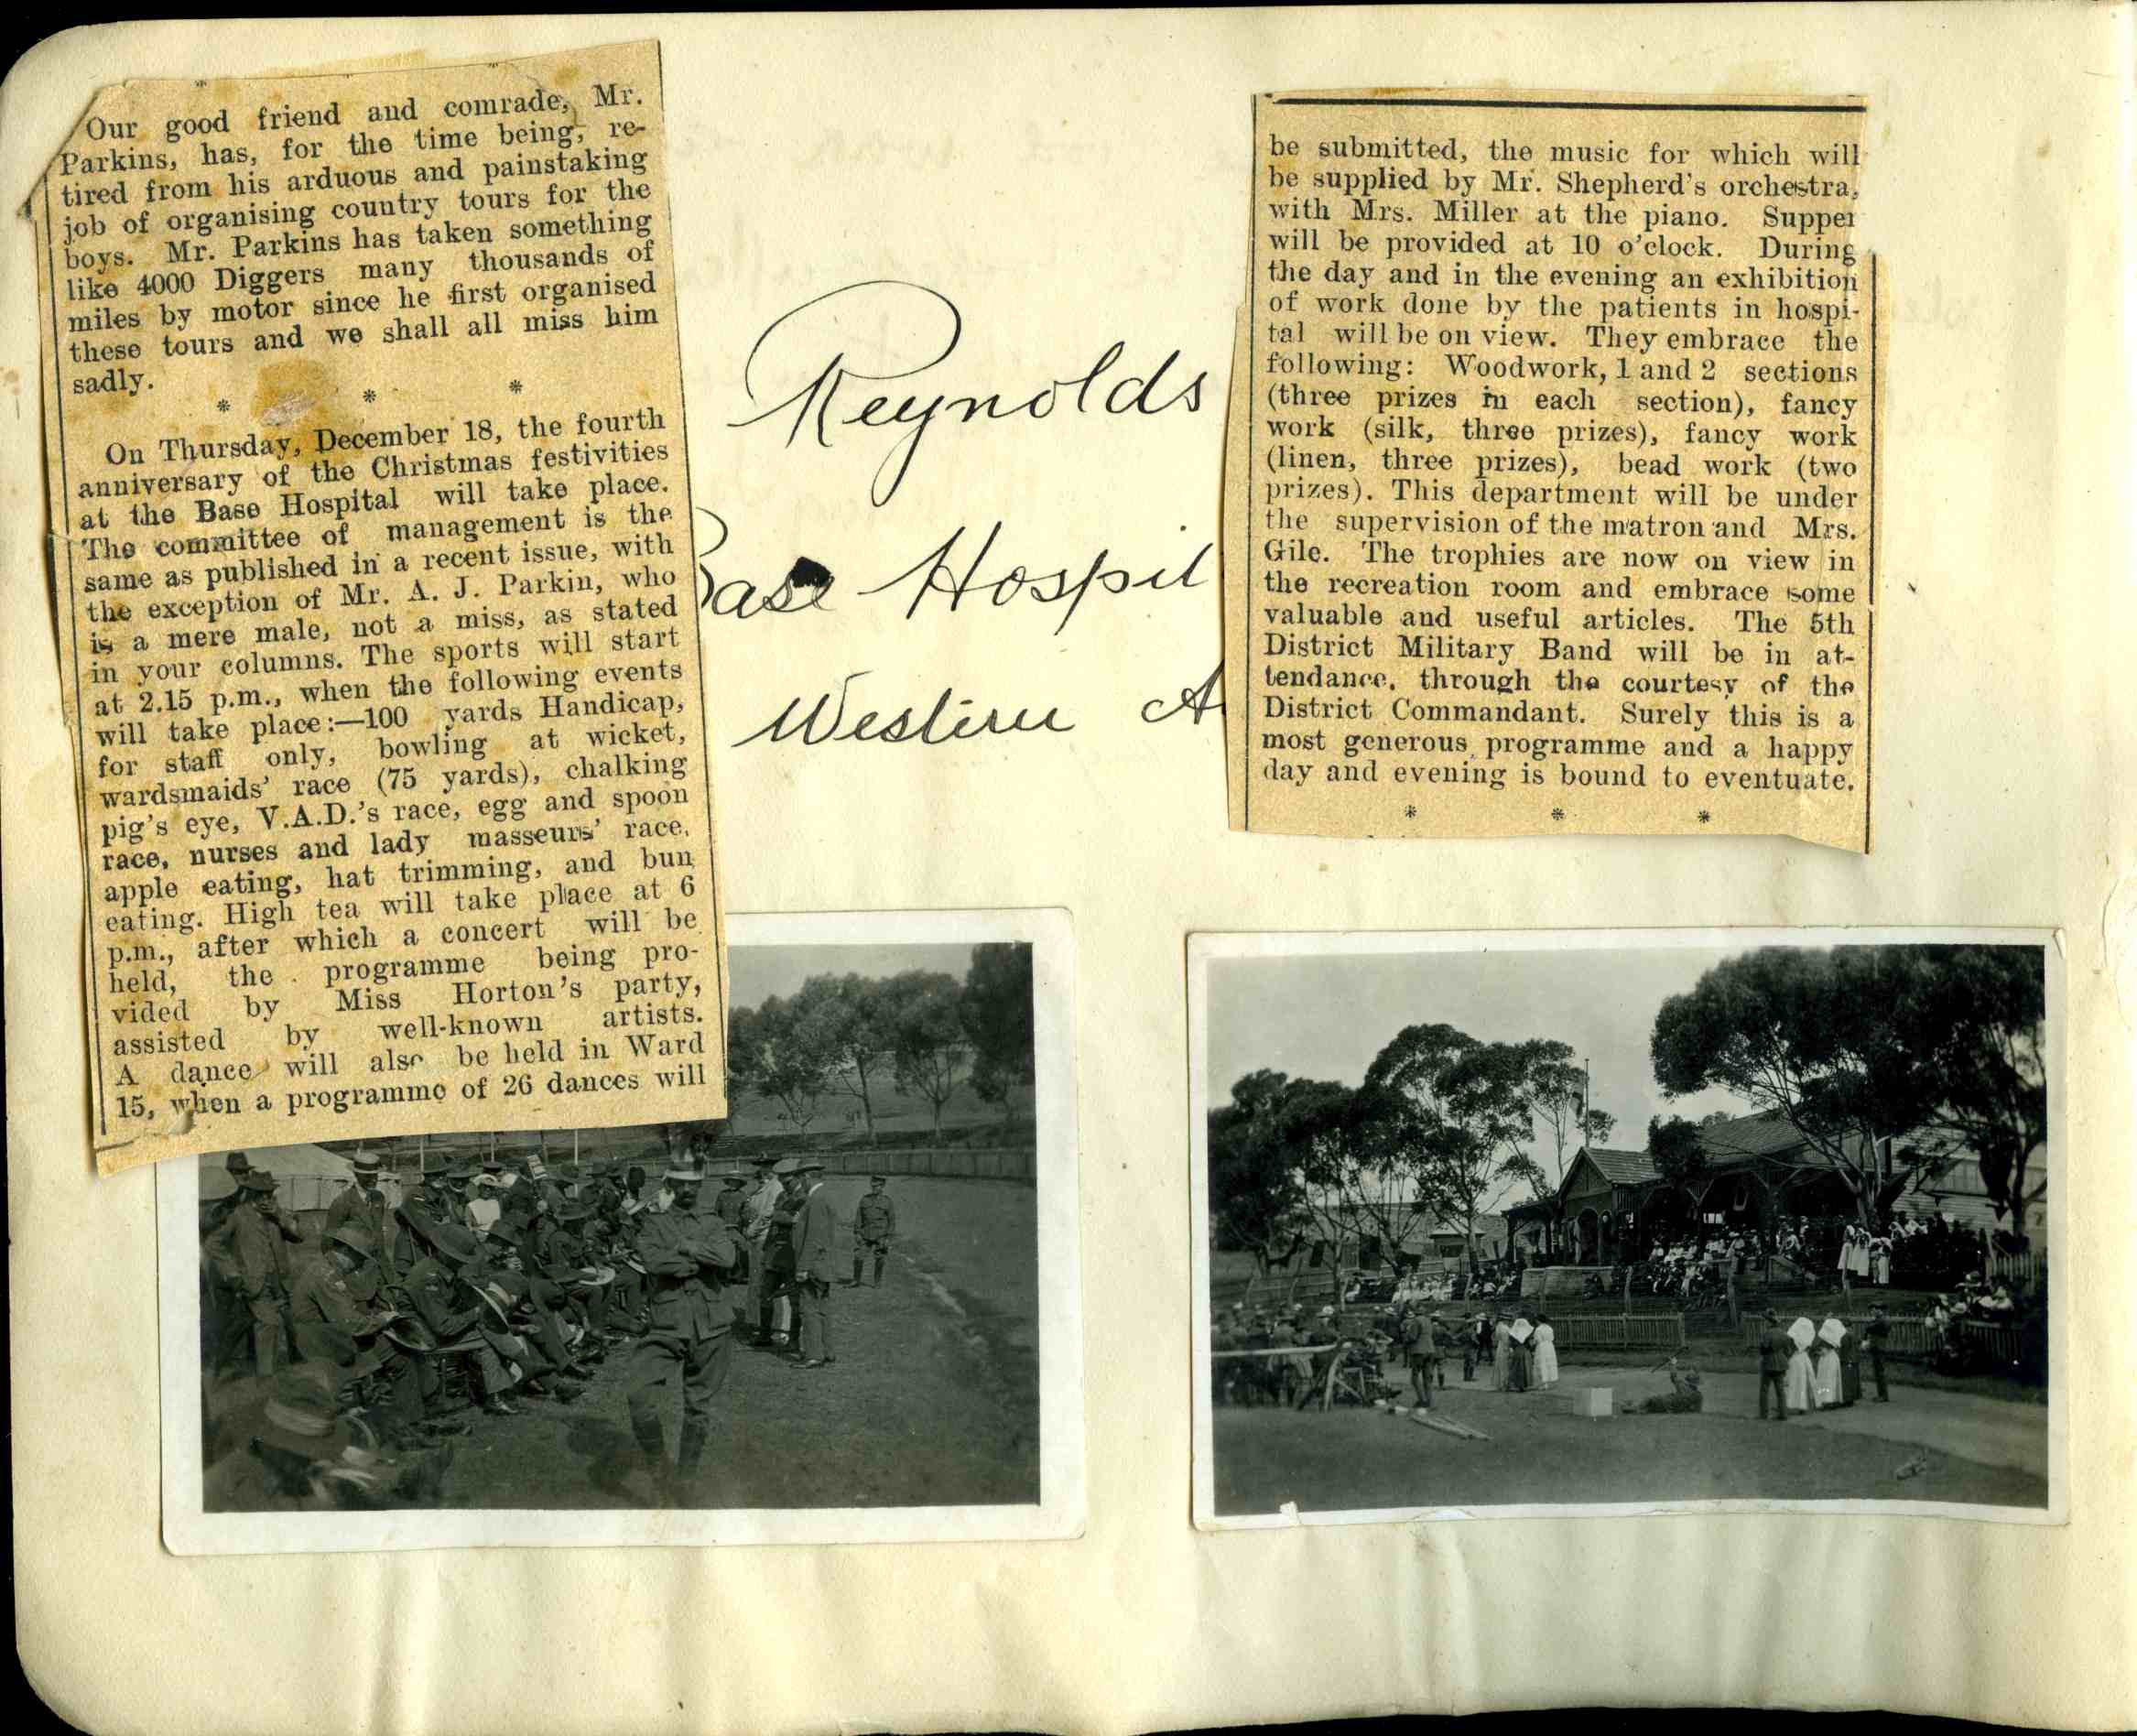 Our good friend and comrade, Mr.
Parkins, has, for the time being, re-
tired from his arduous and painstaking
job of organising country tours for the
boys. Mr. Parkins has taken something
like 4000 Diggers many thousands of
miles by motor since he first organised
these tours and we shall all miss him
sadly.
* * *
On Thursday, December 18, the fourth
anniversary of the Christmas festivities
at the Base Hospital will take place.
The committee of management is the
same as published in a recent issue, with
the exception of Mr. A. J. Parkin, who
is a mere male, not a miss, as stated
in your columns. The sports will start
at 2.15 p.m., when the following events
will take place:—100 yards Handicap,
for staff only, bowling at wicket,
wardsmaids' race (75 yards), chalking
pig's eye, V.A.D.'s race, egg and spoon
race, nurses and lady masseurs' race,
apple eating, hat trimming, and bun
eating. High tea will take place at 6
p.m., after which a concert will be
held, the programme being pro-
vided by Miss Horton's party,
assisted by well-known artists.
A dance will also be held in Ward
15, when a programme of 26 dances will
Reynolds
Base Hospit
Western A
be submitted, the music for which will
be supplied by Mr. Shepherd's orchestra,
with Mrs. Miller at the piano. Supper
will be provided at 10 o'clock. During
the day and in the evening an exhibition
of work done by the patients in hospi-
tal will be on view. They embrace the
following: Woodwork, 1 and 2 sections
(three prizes in each section), fancy
work (silk, three prizes), fancy work
(linen, three prizes), bead work (two
prizes). This department will be under
the supervision of the matron and Mrs.
Gile. The trophies are now on view in
the recreation room and embrace some
valuable and useful articles. The 5th
District Military Band will be in at-
tendance, through the courtesy of the
District Commandant. Surely this is a
most generous programme and a happy
day and evening is bound to eventuate.
* * *